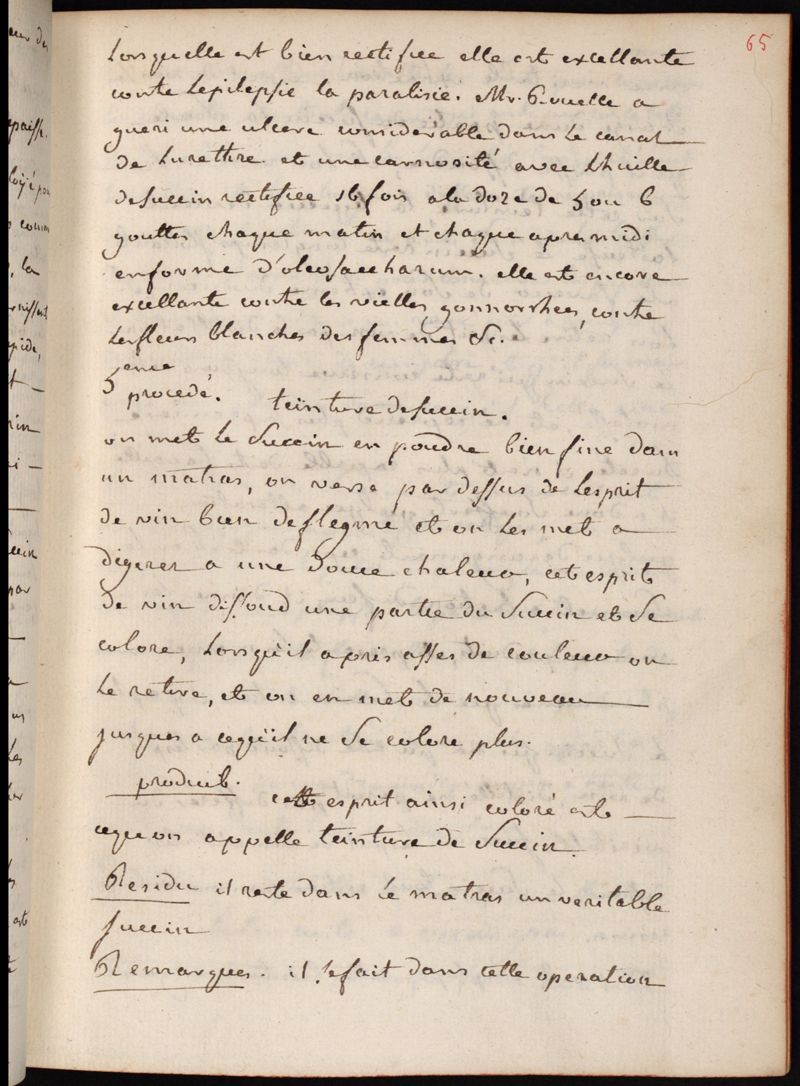 65
Lorsquelle est bien rectifiee elle est excellante
contre Lepilepsie la paralisie. Mr. Rouelle a
gueri une ulcere considerable dans Le canal
de Lurettre et une carnosité avec Lhuille
de succin rectifiee 16 fois a la doze de 5 ou 6
gouttes chaque matin et chaque apres midi
en forme d'oleosaccharum. elle est encore
excellante contre les vielles gonnorrhees, contre
Les fleurs blanches des femmes &c.
5eme
procedé. teinture de succin.
on met Le Succin en poudre bien fine dans
un matras, on verse par dessus de Lesprit
de vin bien deflegmé et on Les met a
digerer a une douce chaleur, cet esprit
de vin dissoud une partie du Succin et Se
colore, Lorsqu'il a pris asses de couleur on
Le retire, et on en met de nouveau
jusques a cequ'il ne Se colore plus.
produit. cette esprit ainsi coloré est
cequ'on appelle teinture de Succin.
Residu il reste dans Le matras un veritable
succin
Remarques. il se fait dans cette operation